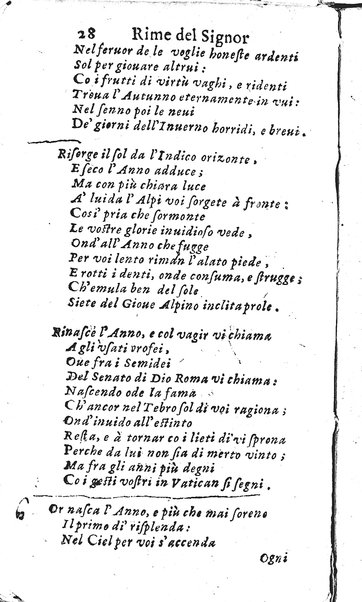 28 Rime del Signor
Nel feruor de le voglie honeste ardenti
Sol per giouare altrui:
Co i frutti di virtù vaghi, e ridenti
Troua l'Autunno eternamente in vui:
Nel senno poi le neui
De' giorni dell'Inuerno horridi, e breui.
Risorge il sol da l'Indico orizonte,
E seco l'Anno adduce;
Ma con più chiara luce
A' lui da l'Alpi voi sorgete à fronte:
Cosi' pria che sormonte
Le vostre glorie inuidioso vede,
Ond'all'Anno che fugge
Per voi lento riman l'alato piede,
E rotti i denti, onde consuma, e strugge;
Ch'emula ben del sole
Siete del Gioue Alpino inclita prole.
Rinasce l'Anno, e col vagir vi chiama
A gli vsati trofei,
Oue fra i Semidei
Del Senato di Dio Roma vi chiama:
Nascendo ode la fama
Ch'ancor nel Tebro sol di voi ragiona;
Ond'inuido all'estinto
Resta, e à tornar co i lieti dì vi sprona
Perche da lui non sia di merto vinto;
Ma fra gli anni più degni
Co i gesti vostri in Vatican si segni.
Or nasca l'Anno, e più che mai sereno
Il primo dì risplenda:
Nel Ciel per voi s'accenda
Ogni